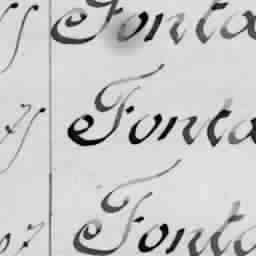 Fonta
75 Fonta
07 Fonta